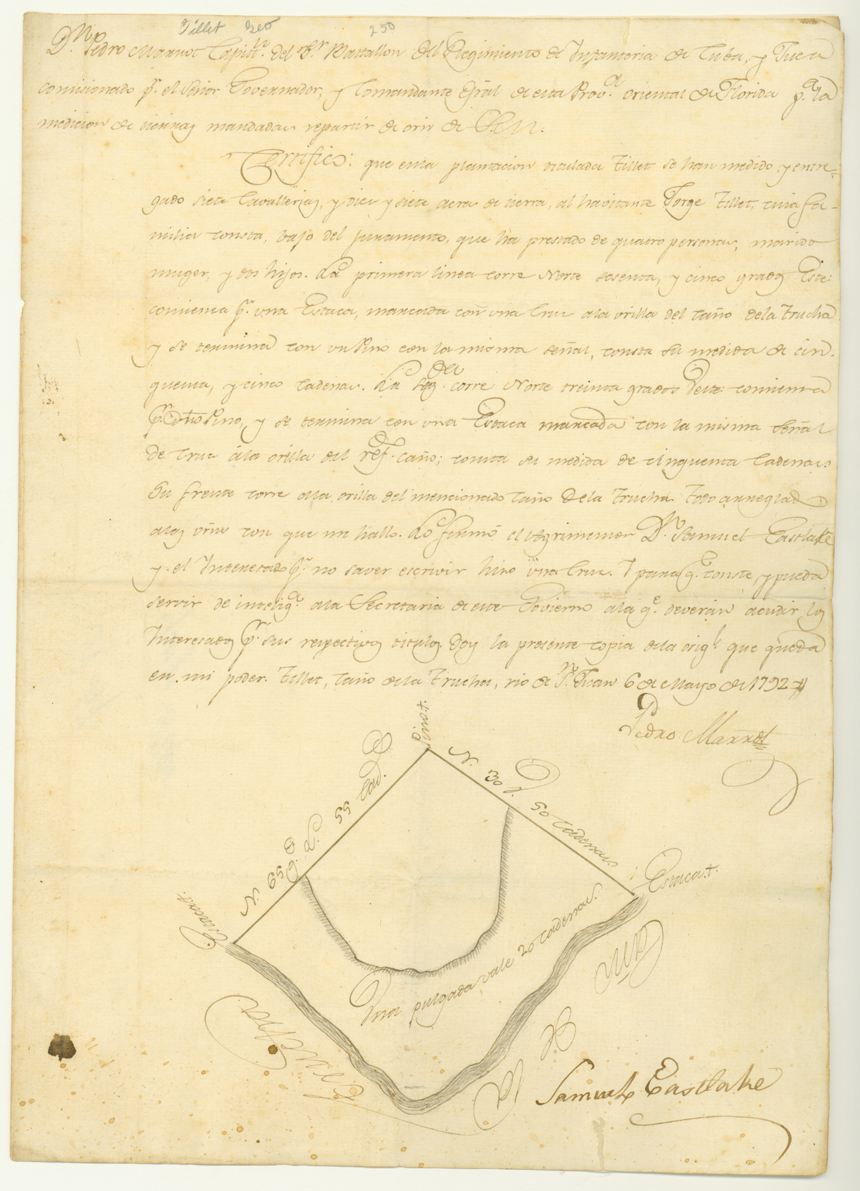 Tillet Geo 250
Dn. Pedro Marrot Capitn. del 3r. Battallon del Regimiento de Infanteria de Cuba, y Juez
comisionado pr. el Señor Governador, y Comandante Gral de esta Prova. oriental de Florida pa. la
medicion de tierras mandadas repartir de orn de S. M.
Certifico: que en la plantacion titulada Tillet se han medido y entre-
gado siete Cavallerias, y diez y siete acra de tierra, al havitante Jorge Tillet, cuia fa-
milia consta, bajo del juramento, que ha prestado de quatro personas, marido
muger, y dos hijos. La primera linea corre Norte sesenta, y cinco grads Este:
comienza pr. una Estaca, marcada con una Cruz a la orilla del Caño de la Trucha
y se termina con un Pino con la misma señal, consta su medida de cin-
quenta, y cinco Cadenas. La segda. corre Norte treinta grados Oeste: comienza
pr. dho Pino, y se termina con una Estaca marcada con la misma señal
de Cruz á la orilla del refdo. caño; consta su medida de cinquenta Cadenas.
Su frente corre a la orilla del mencionado Caño de la Trucha. Todo arreglado
a las orns con que me hallo. Lo firmó el Agrimensor Dn. Samuel Eastlake
y el Interesado pr. no saver escrivir hizo una Cruz. I para qe. conste, y pueda
servir de inteliga. a la Secretaria de este Govierno a la qe. deverán acudir los
Interesados pr. sus respectivos titulos doy la presente copia de la origl. que queda
en mi poder. Tillet, Caño de la Trucha, rio de Sn. Juan 6 de Mayo de 1792
Pedro Marrot
Pino +.
N. 65 g. E. 55 Cad.
N. 30 g. O. 50 Cadenas
Estaca +.
Estaca +.
Una pulgada vale 20 Cadenas.
Caño de la Trucha
Samuel Eastlake